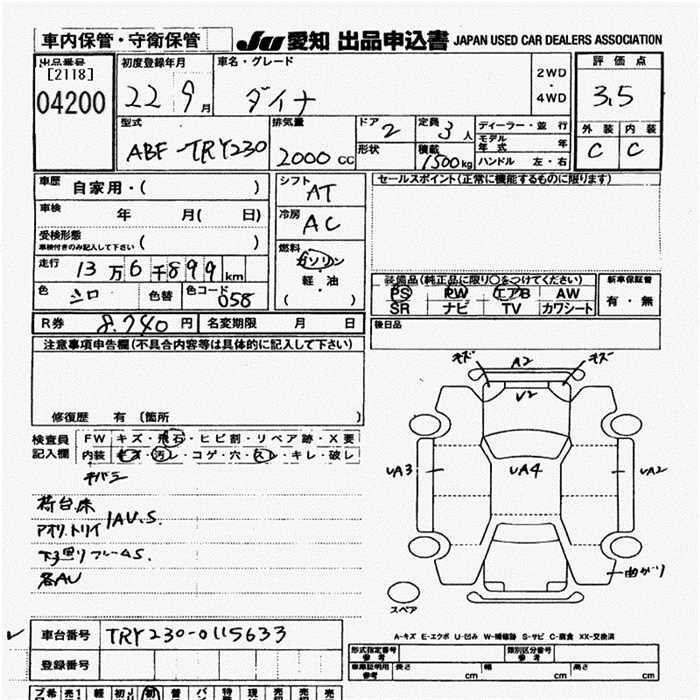 車内保管・守衛保管
JU 愛知 出品申込書 JAPAN USED CAR DEALERS ASSOCIATION
出品番号
[2118]
04200
初度登録年月
22 9月
車名・グレード
ダイナ
2WD
・
4WD
評価点
3.5
外装 内装
C C
型式
ABF-TRY230
排気量
2000 CC
ドア
2
形状
定員
3人
積載
1500kg
ディーラー・並行
モデル年式 年
ハンドル 左・右
車歴
自家用・( )
車検
年 月( 日)
受検形態
車検付きのみ記入して下さい ( )
走行
13万6千899km
色
シロ
色替
色コード
058
シフト
AT
冷房
AC
燃料
ガソリン
・
軽・油
( )
セールスポイント(正常に機能するものに限ります)
装備品(純正品に限り○をつけてください)
PS PW エアB AW
SR ナビ TV カワシート
新車保証書
有・無
後日品
R券 8,740円 名変期限 月 日
注意事項申告欄(不具合内容等は具体的に記入して下さい)
修復歴 有 (箇所 )
検査員記入欄
FW キズ・飛石・ヒビ割・リペア跡・X要
内装 キズ・汚レ・コゲ・穴・スレ・キレ・破レ
荷台床
アオリ、トリイ AU.S.
下廻りフレームS.
各AU
キズ A2 キズ
V2
UA3 UA4 UA2
曲がり
スペア
A-キズ E-エクボ U-凹み W-補修跡 S-サビ C-腐食 XX-交換済
車台番号 TRY230-0115633
登録番号
形式指定番号
参考
類別区分番号
参考
車庫証明用
参考
長さ cm 幅 cm 高さ cm